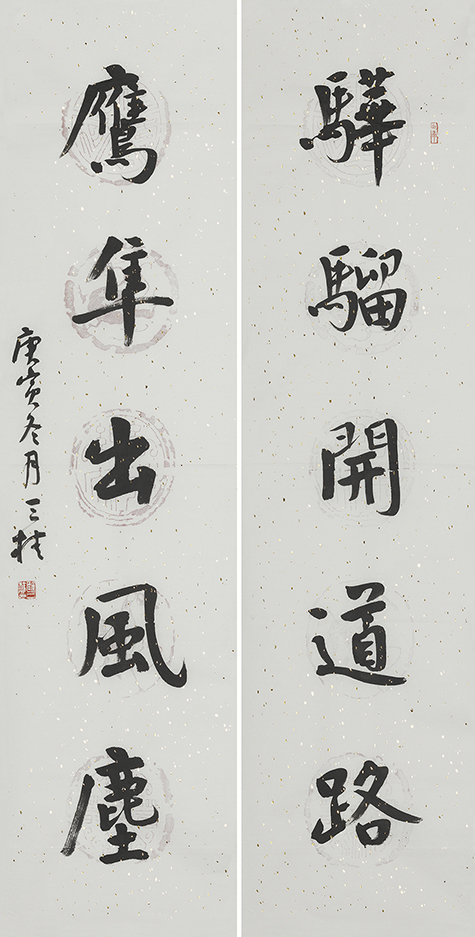 驊騮開道路
鷹隼出風塵
庚寅冬月三桂